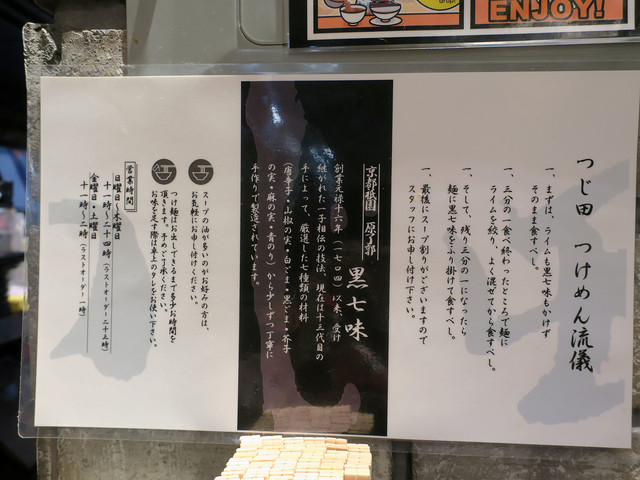 ENJOY!
つじ田 つけめん流儀
一、まずは、ライムも黒七味もかけず
そのまま食すべし。
一、三分の一食べ終わったところで麺に
ライムを絞り、よく混ぜてから食すべし。
一、そして、残り三分の一になったら、
麺に黒七味をふり掛けて食すべし。
一、最後にスープ割りがございますので
スタッフにお申し付け下さい。
京都祇園 原了郭
黒七味
創業元禄十六年(一七〇四)以来、受け
継がれた一子相伝の技法、現在は十三代目の
手によって、厳選した七種類の材料
(唐辛子・山椒の実・白ごま・黒ごま・芥子
の実・麻の実・青のり)から少しずつ丁寧に
手作りで製造されています。
スープの油が多いのがお好みの方は、
お気軽にお申し付けください。
つけ麺はお出しできるまで多少お時間を
頂きます。予めご了承ください。
お味を足す際は卓上のタレをお使い下さい。
営業時間
日曜日〜木曜日
十一時〜二十四時(ラストオーダー二十三時)
金曜日・土曜日
十一時〜二時(ラストオーダー一時)